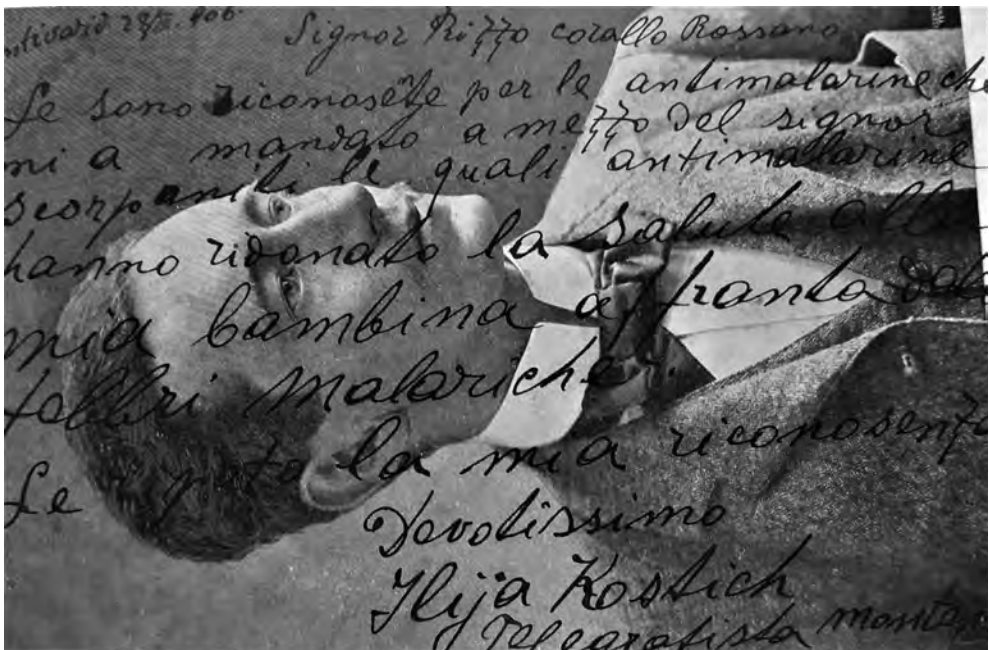 ntivari 28/III. 906.
Signor Rizzo corallo Rossano
Le sono riconosete per le antimalarine che
mi a mandato a mezzo del signor
le quali antimallarine
hanno ridonato la salute alla
mia bambina affranta dale
febbri malariche.
Le la mia riconosenza
Devotissimo
Ilija Kostich
Telegrafista